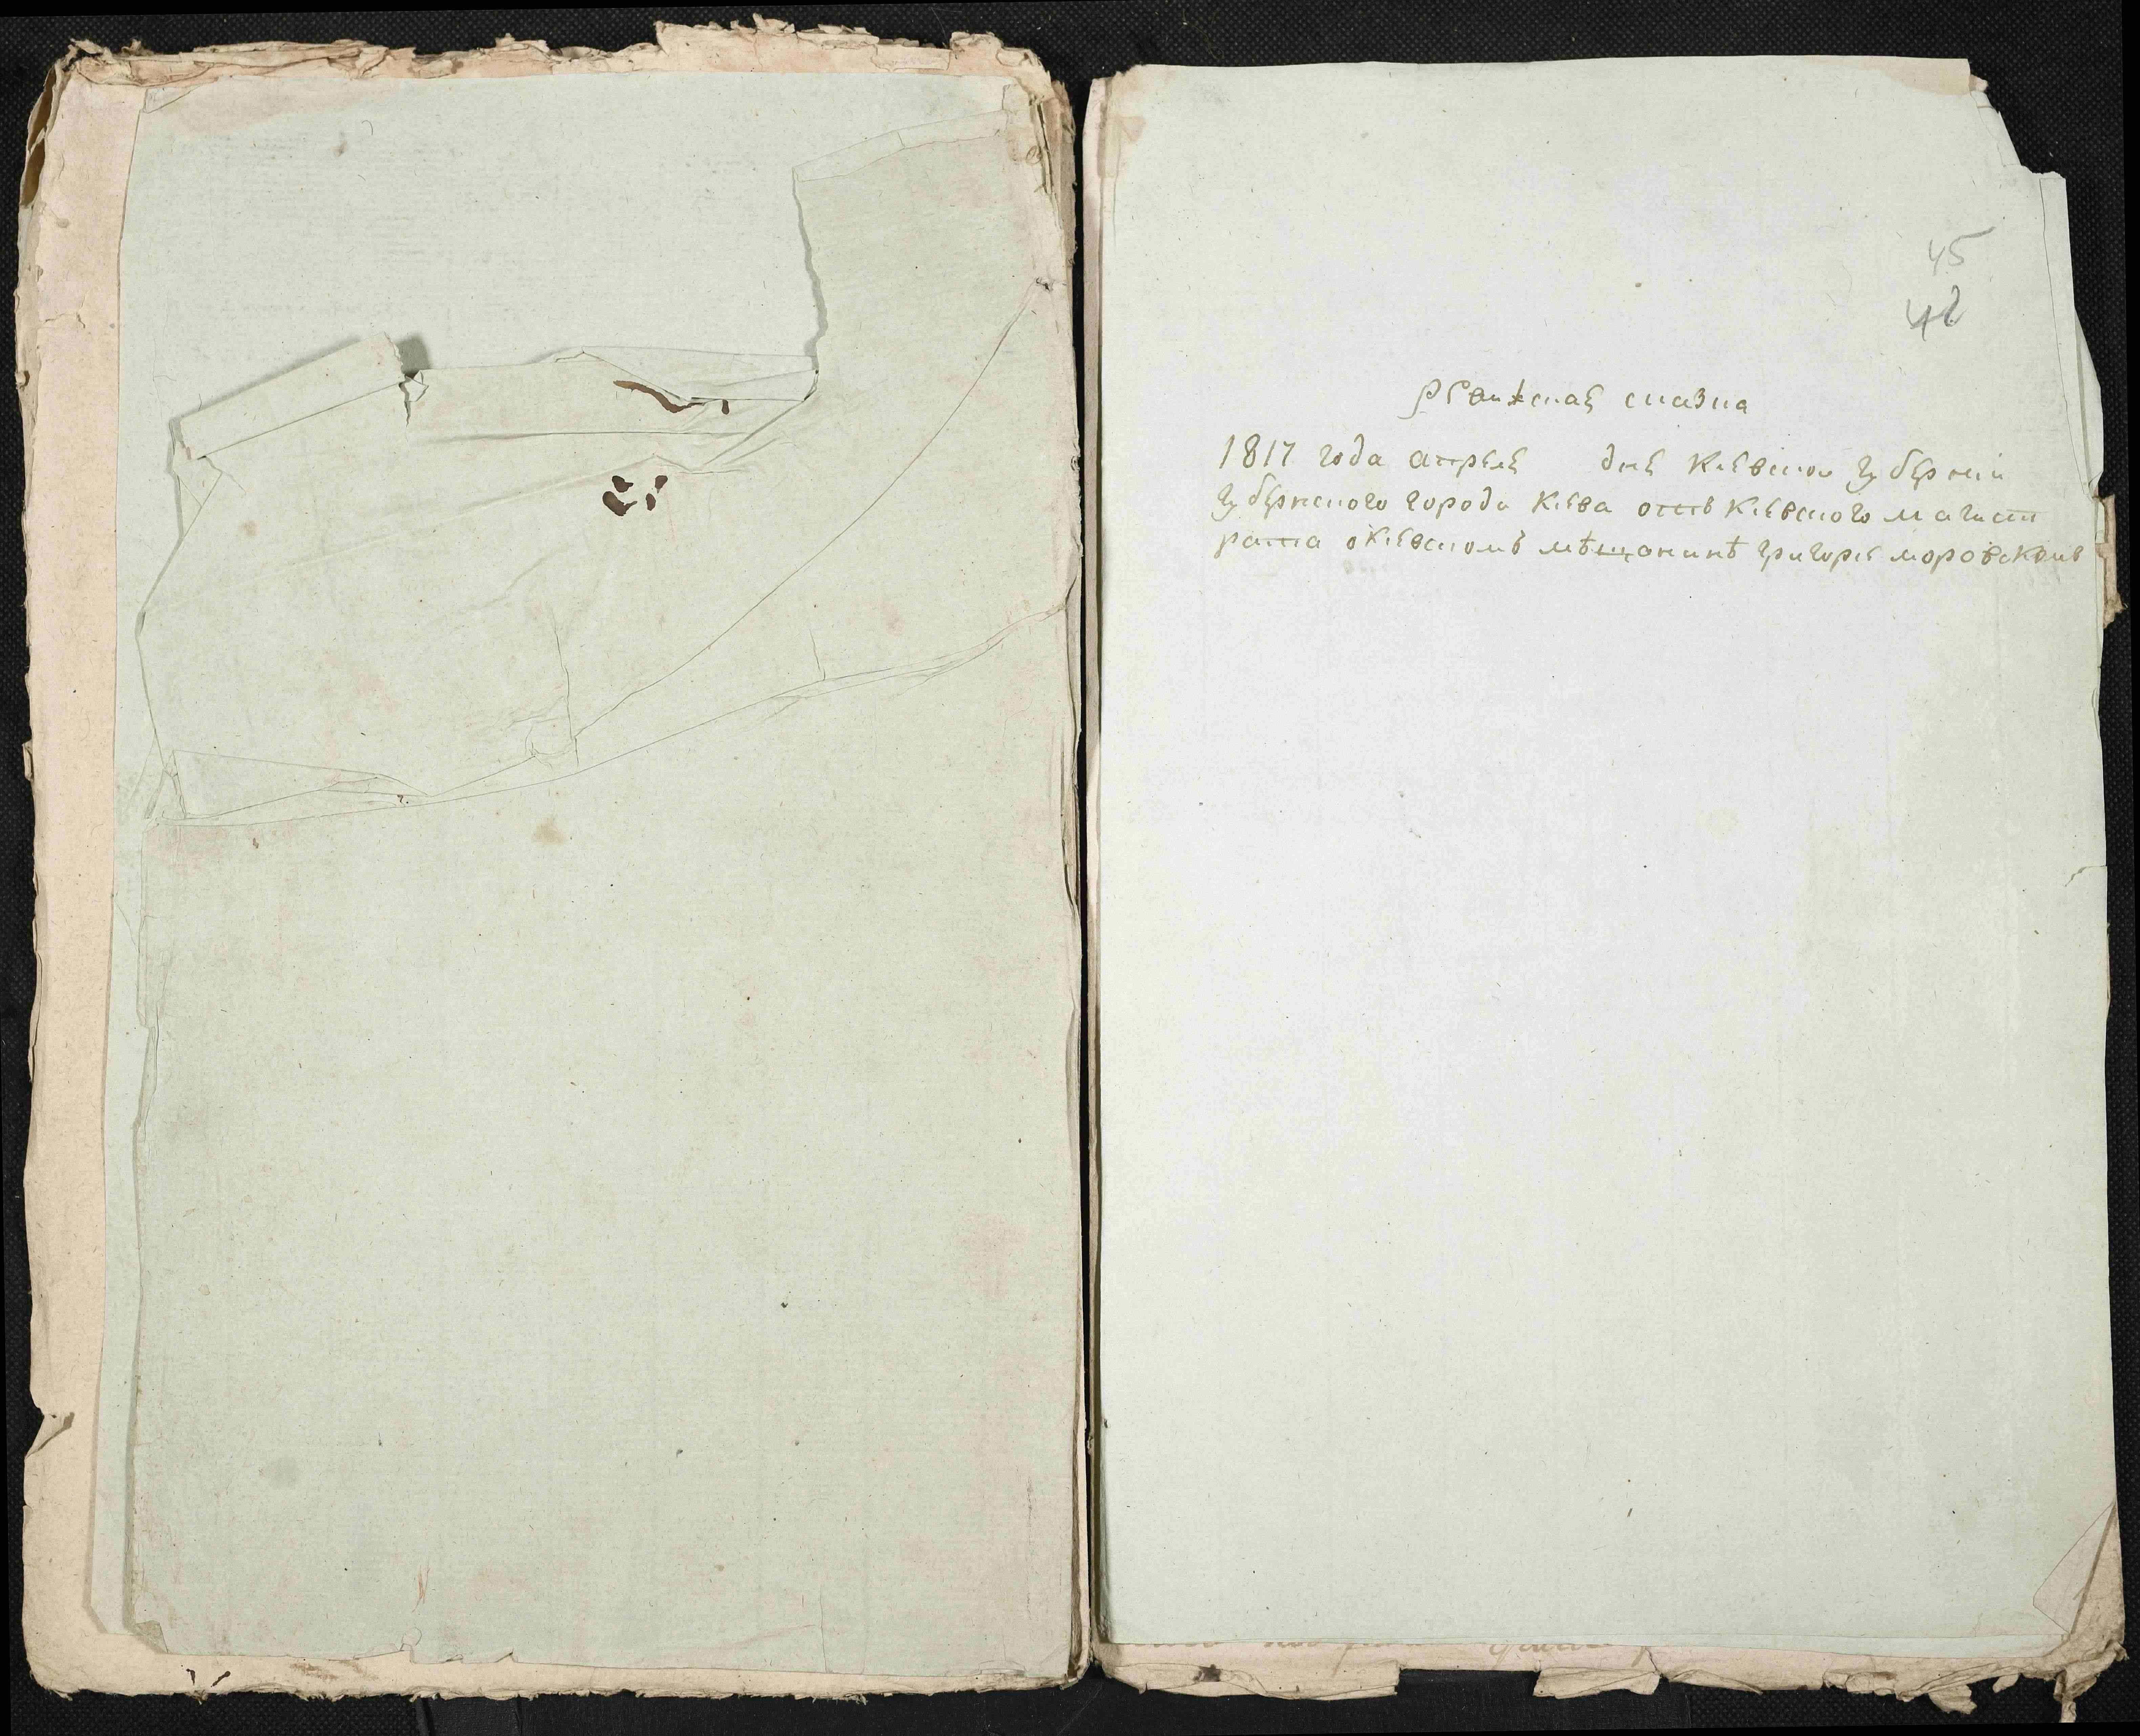 45
42
Ревижская сказка
1817 года апреля дня Киевской губернии
губернского города Киева отъ Киевского магист
рата о Киевскомъ мѣщанинѣ григорѣ моровскомъ